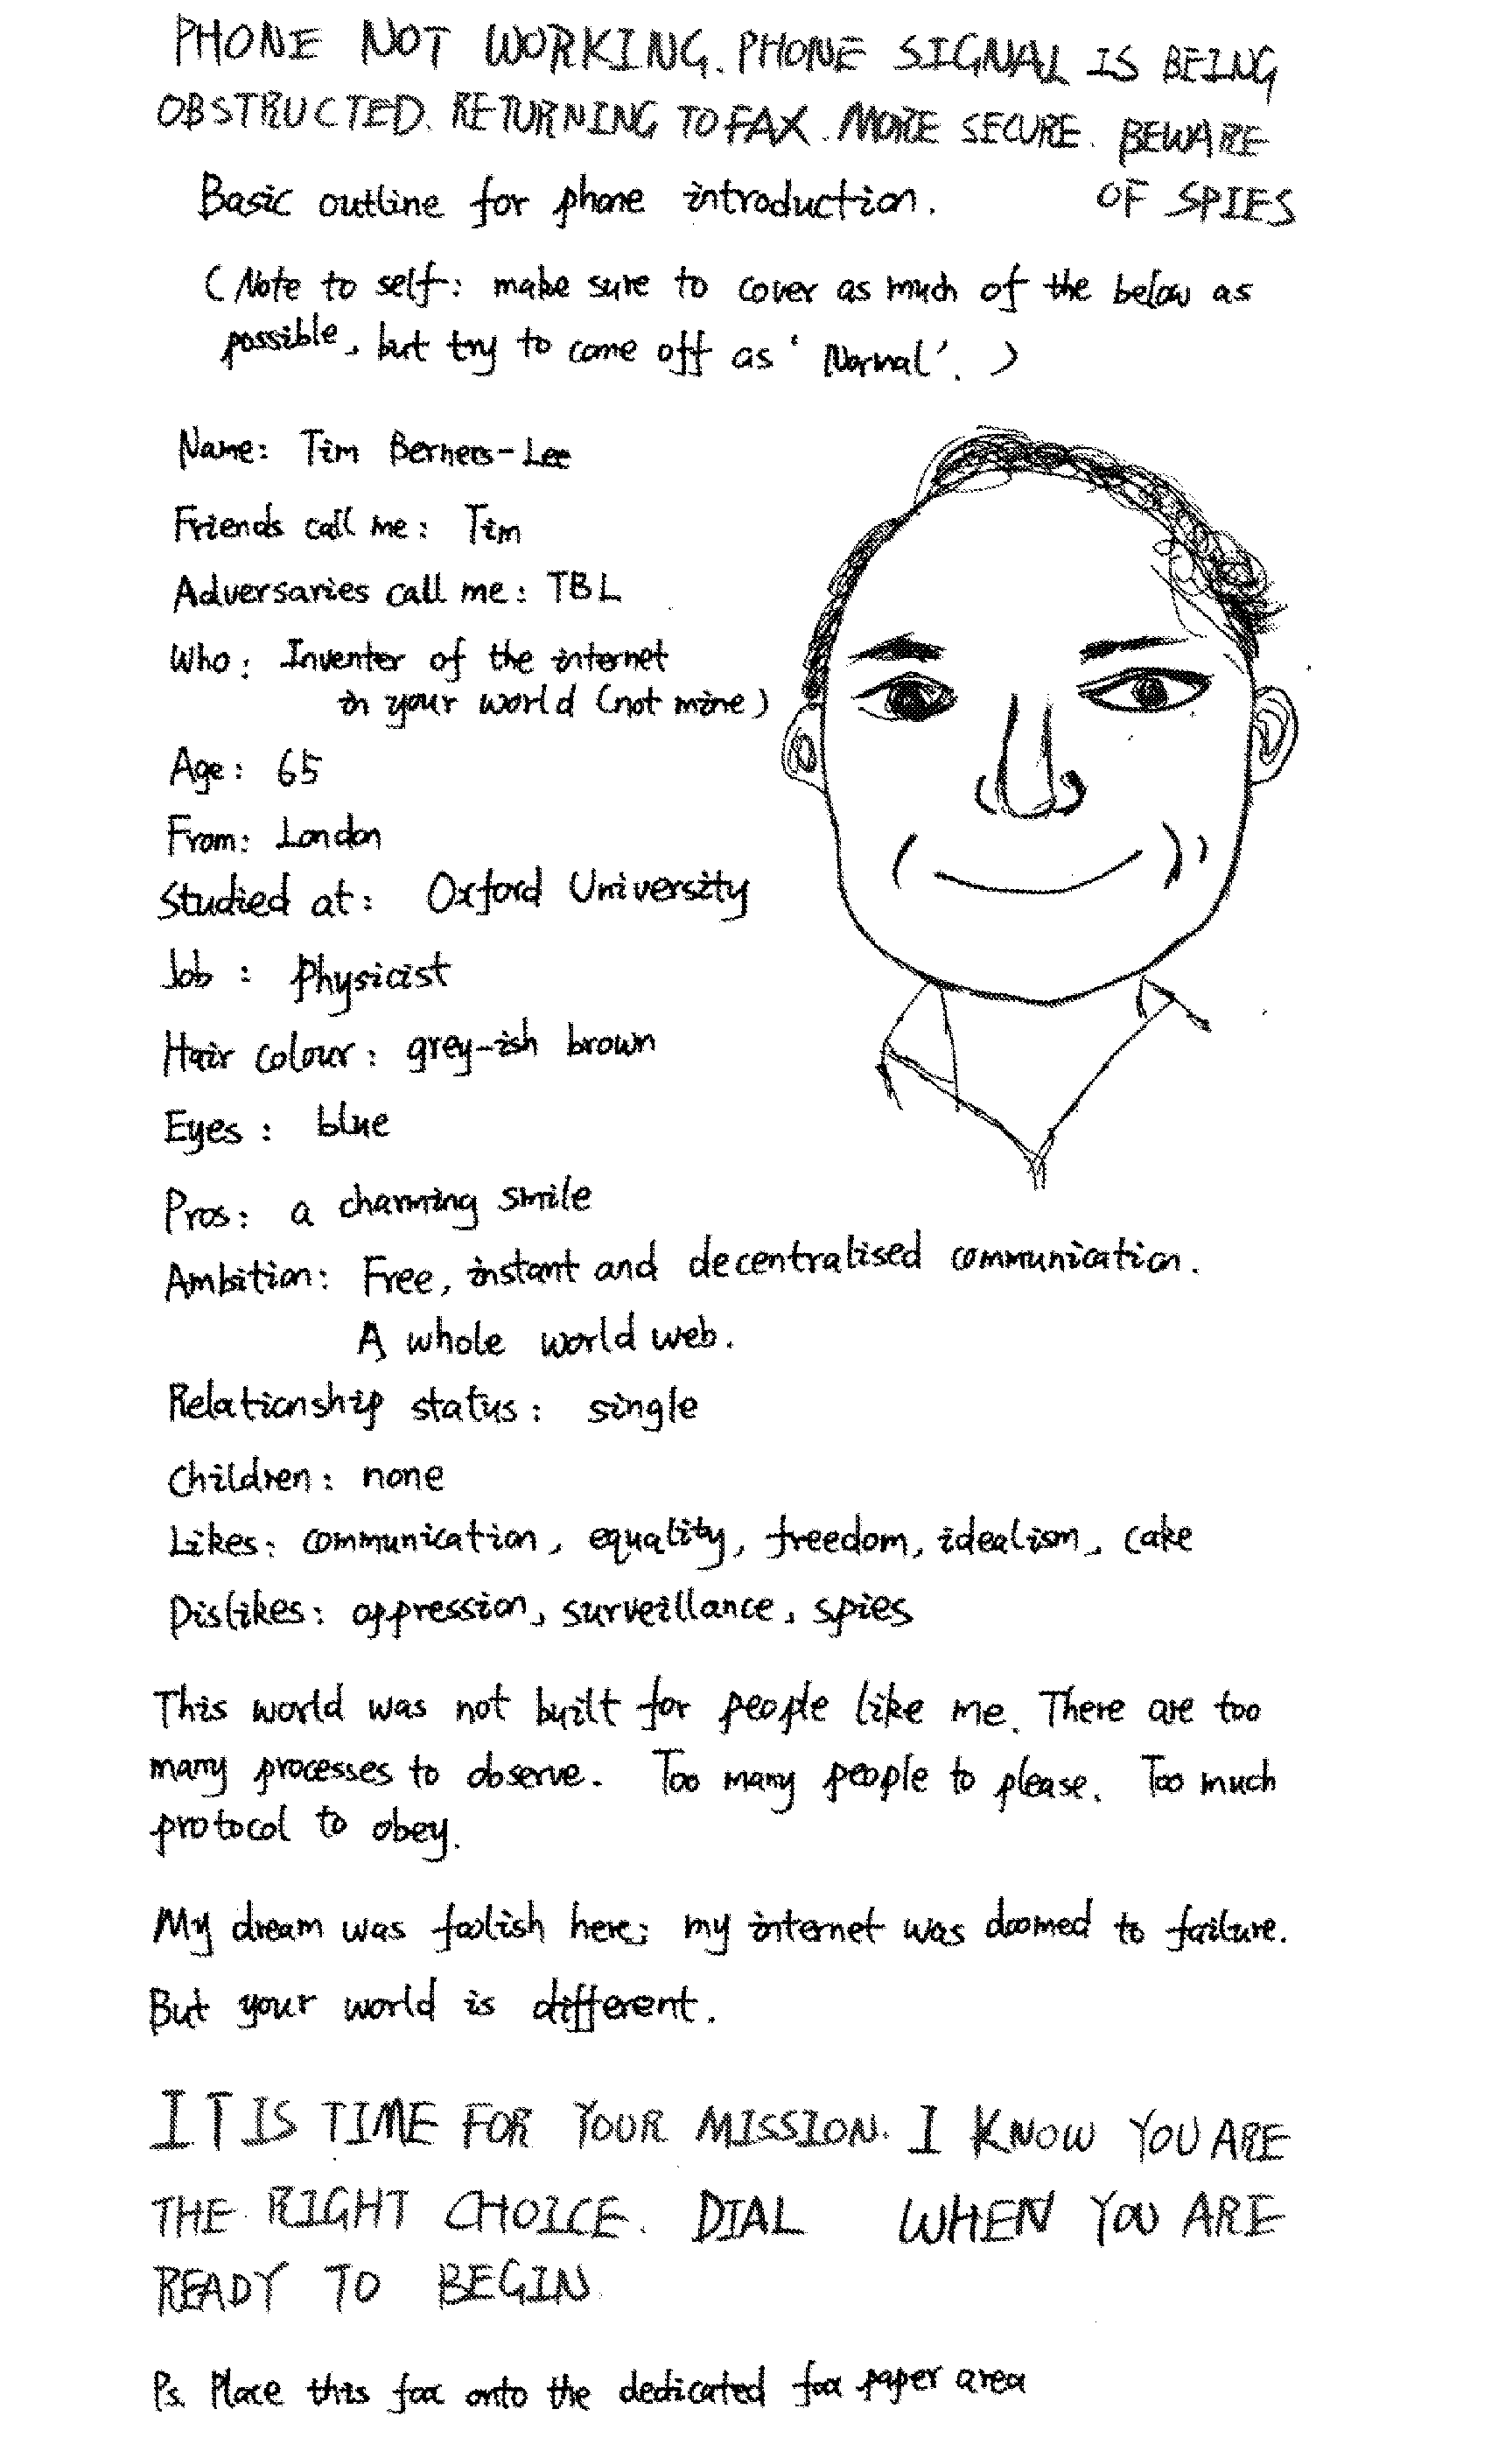 PHONE NOT WORKING. PHONE SIGNAL IS BEING
OBSTRUCTED. RETURNING TO FAX. MORE SECURE. BEWARE
OF SPIES
Basic outline for phone introduction.
(Note to self: make sure to cover as much of the below as
possible, but try to come off as 'Normal'.)
Name: Tim Berners-Lee
Friends call me: Tim
Adversaries call me: TBL
Who: Inventer of the internet
in your world (not mine)
Age: 65
From: London
Studied at: Oxford University
Job: Physicist
Hair colour: grey-ish brown
Eyes: blue
Pros: a charming smile
Ambition: Free, instant and decentralised communication.
A whole world web.
Relationship status: single
Children: none
Likes: communication, equality, freedom, idealism, cake
Dislikes: oppression, surveillance, spies
This world was not built for people like me. There are too
many processes to observe. Too many people to please. Too much
protocol to obey.
My dream was foolish here; my internet was doomed to failure.
But your world is different.
IT IS TIME FOR YOUR MISSION. I KNOW YOU ARE
THE RIGHT CHOICE. DIAL WHEN YOU ARE
READY TO BEGIN.
Ps. Place this fax onto the dedicated fax paper area